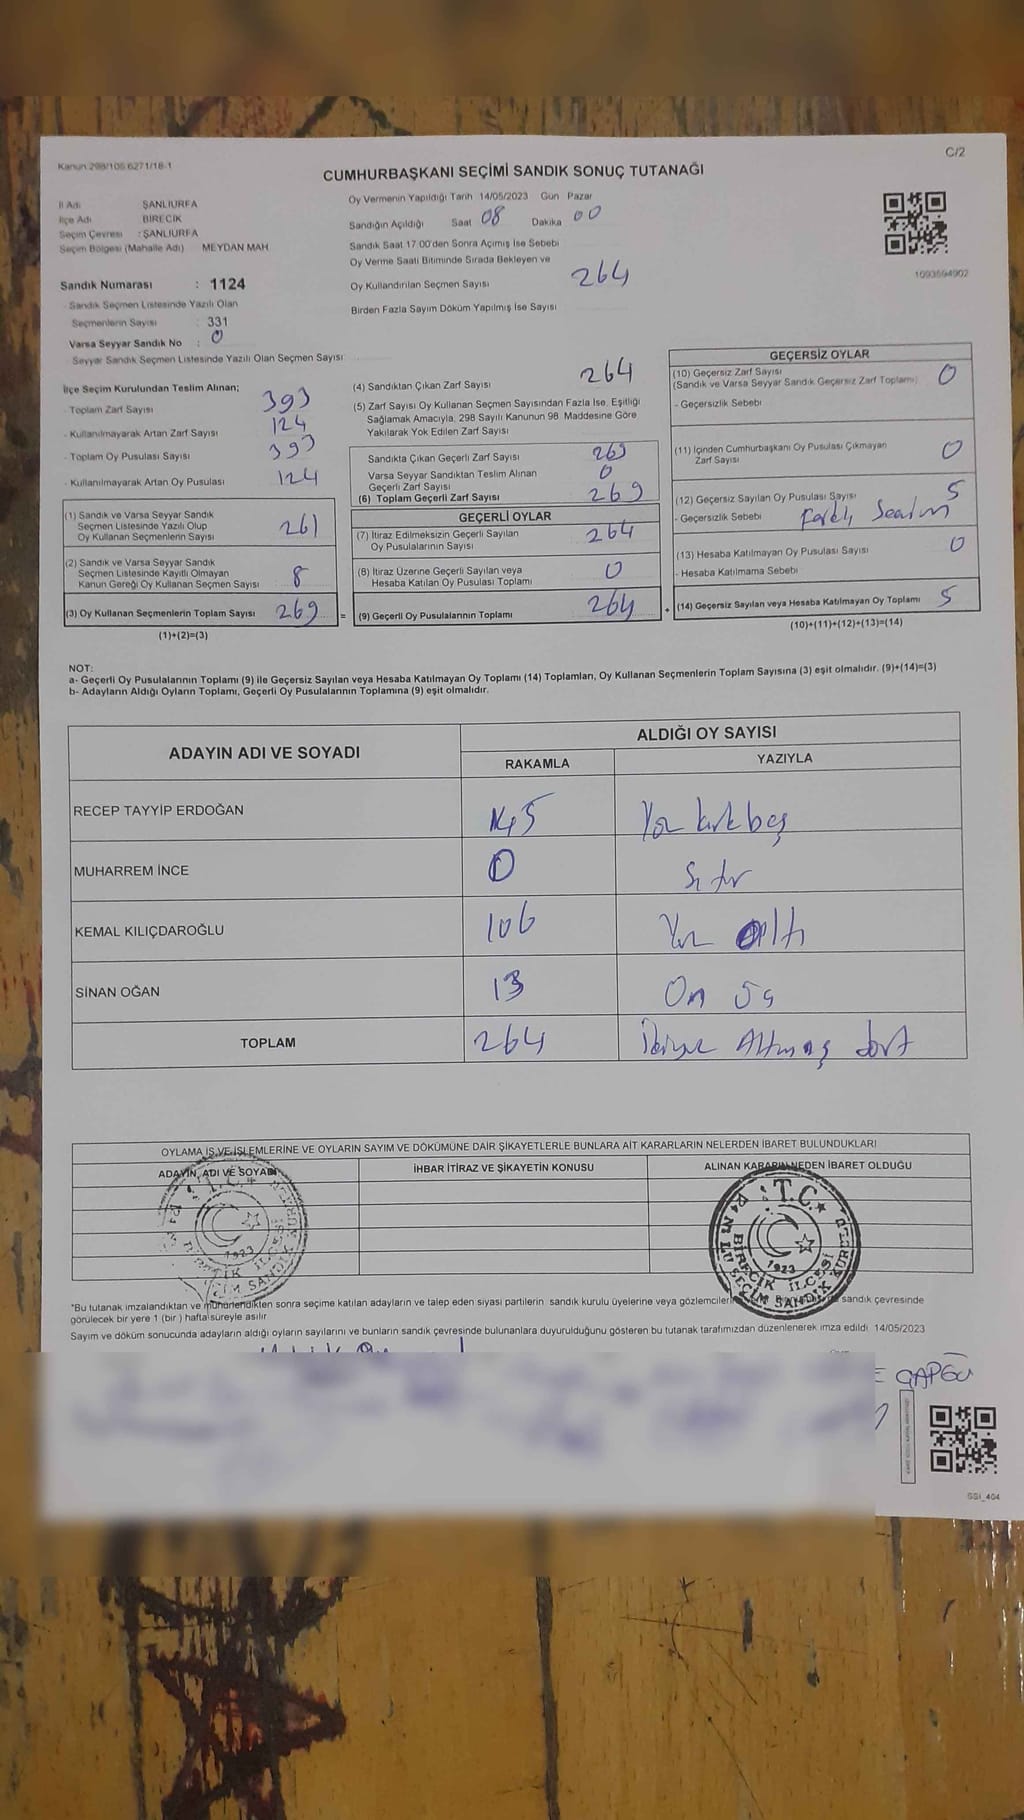 C/2
Kanun 298/105 6271/18-1
CUMHURBAŞKANI SEÇİMİ SANDIK SONUÇ TUTANAĞI
İl Adı ŞANLIURFA
İlçe Adı BİRECİK
Seçim Çevresi : ŞANLIURFA
Seçim Bölgesi (Mahalle Adı) MEYDAN MAH
Sandık Numarası : 1124
- Sandık Seçmen Listesinde Yazılı Olan
Seçmenlerin Sayısı : 331
Varsa Seyyar Sandık No : 0
- Seyyar Sandık Seçmen Listesinde Yazılı Olan Seçmen Sayısı
Oy Vermenin Yapıldığı Tarih 14/05/2023 Gün Pazar
Sandığın Açıldığı Saat 08 Dakika 00
Sandık Saat 17.00'den Sonra Açımış İse Sebebi
Oy Verme Saati Bitiminde Sırada Bekleyen ve
Oy Kullandırılan Seçmen Sayısı 264
Birden Fazla Sayım Döküm Yapılmış İse Sayısı
1093594902
İlçe Seçim Kurulundan Teslim Alınan;
- Toplam Zarf Sayısı 393
- Kullanılmayarak Artan Zarf Sayısı 124
- Toplam Oy Pusulası Sayısı 393
- Kullanılmayarak Artan Oy Pusulası 124
(1) Sandık ve Varsa Seyyar Sandık
Seçmen Listesinde Yazılı Olup
Oy Kullanan Seçmenlerin Sayısı 261
(2) Sandık ve Varsa Seyyar Sandık
Seçmen Listesinde Kayıtlı Olmayan
Kanun Gereği Oy Kullanan Seçmen Sayısı 8
(3) Oy Kullanan Seçmenlerin Toplam Sayısı 269 =
(1)+(2)=(3)
(4) Sandıktan Çıkan Zarf Sayısı 264
(5) Zarf Sayısı Oy Kullanan Seçmen Sayısından Fazla İse, Eşitliği
Sağlamak Amacıyla, 298 Sayılı Kanunun 98. Maddesine Göre
Yakılarak Yok Edilen Zarf Sayısı
Sandıkta Çıkan Geçerli Zarf Sayısı 269
Varsa Seyyar Sandıktan Teslim Alınan
Geçerli Zarf Sayısı 0
(6) Toplam Geçerli Zarf Sayısı 269
GEÇERLİ OYLAR
(7) İtiraz Edilmeksizin Geçerli Sayılan
Oy Pusulalarının Sayısı 264
(8) İtiraz Üzerine Geçerli Sayılan veya
Hesaba Katılan Oy Pusulası Toplamı 0
(9) Geçerli Oy Pusulalarının Toplamı 264 +
GEÇERSİZ OYLAR
(10) Geçersiz Zarf Sayısı
(Sandık ve Varsa Seyyar Sandık Geçersiz Zarf Toplamı) 0
- Geçersizlik Sebebi
(11) İçinden Cumhurbaşkanı Oy Pusulası Çıkmayan
Zarf Sayısı 0
(12) Geçersiz Sayılan Oy Pusulası Sayısı 5
- Geçersizlik Sebebi
(13) Hesaba Katılmayan Oy Pusulası Sayısı 0
- Hesaba Katılmama Sebebi
(14) Geçersiz Sayılan veya Hesaba Katılmayan Oy Toplamı 5
(10)+(11)+(12)+(13)=(14)
NOT:
a- Geçerli Oy Pusulalarının Toplamı (9) ile Geçersiz Sayılan veya Hesaba Katılmayan Oy Toplamı (14) Toplamları, Oy Kullanan Seçmenlerin Toplam Sayısına (3) eşit olmalıdır. (9)+(14)=(3)
b- Adayların Aldığı Oyların Toplamı, Geçerli Oy Pusulalarının Toplamına (9) eşit olmalıdır.
ADAYIN ADI VE SOYADI ALDIĞI OY SAYISI
RAKAMLA YAZIYLA
RECEP TAYYİP ERDOĞAN 145 Yüz kırk beş
MUHARREM İNCE 0 Sıfır
KEMAL KILIÇDAROĞLU 106 Yüz Altı
SİNAN OĞAN 13 On üç
TOPLAM 264 İkiyüz Altmış dört
OYLAMA İŞ VE İŞLEMLERİNE VE OYLARIN SAYIM VE DÖKÜMÜNE DAİR ŞİKAYETLERLE BUNLARA AİT KARARLARIN NELERDEN İBARET BULUNDUKLARI
ADAYIN, ADI VE SOYADI İHBAR İTİRAZ VE ŞİKAYETİN KONUSU ALINAN KARARIN NEDEN İBARET OLDUĞU
T.C.
1923
T.C.
BİRECİK İLÇESİ
1923
*Bu tutanak imzalandıktan ve mühürlendikten sonra seçime katılan adayların ve talep eden siyasi partilerin sandık kurulu üyelerine veya gözlemcilerine sandık çevresinde
görülecek bir yere 1 (bir) hafta süreyle asılır
Sayım ve döküm sonucunda adayların aldığı oyların sayılarını ve bunların sandık çevresinde bulunanlara duyurulduğunu gösteren bu tutanak tarafımızdan düzenlenerek imza edildi 14/05/2023
SSİ_404